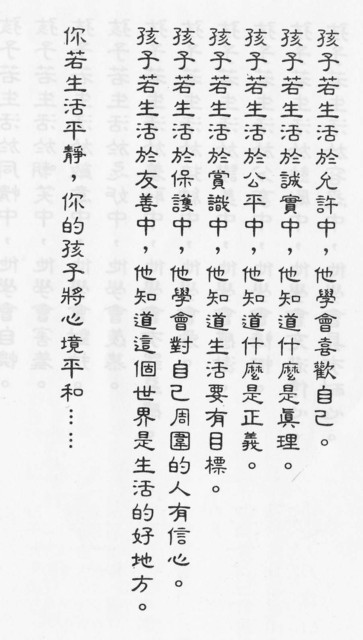 孩子若生活於允許中，他學會喜歡自己。
孩子若生活於誠實中，他知道什麼是眞理。
孩子若生活於公平中，他知道什麼是正義。
孩子若生活於賞識中，他知道生活要有目標。
孩子若生活於保護中，他學會對自己周圍的人有信心。
孩子若生活於友善中，他知道這個世界是生活的好地方。
你若生活平靜，你的孩子將心境平和……